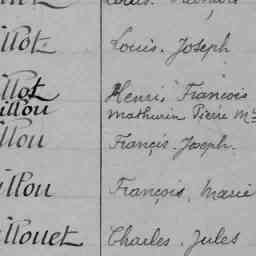 illot. Louis. Joseph
illot Henri, François
illou Mathurin Pierre Mie
illou François. Joseph.
illou François, Marie
illouet Charles. Jules